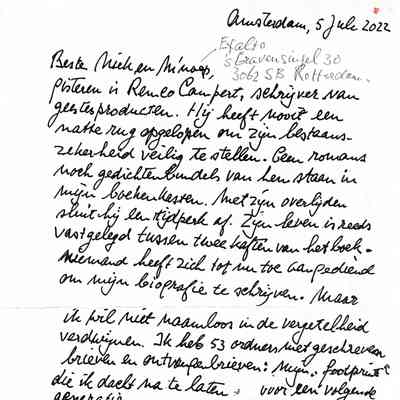 Amsterdam, 5 July 2022
Exalto
's Gravensingel 30
3062 SB Rotterdam.
Beste Niek en
gisteren is Remco Campert, schrijver van
geestesproducten. Hij heeft nooit een
natte rug opgelopen om zijn bestaans-
zekerheid veilig te stellen. Geen romans
noch gedichtenbundels van hem staan in
mijn boekenkasten. Met zijn overlijden
sluit hij een tijdperk af. Zijn leven is reeds
vastgelegd tussen twee kaften van het boek.
Niemand heeft zich tot nu toe aangediend
om mijn biografie te schrijven. Maar
ik wil niet naamloos in de vergetelheid
verdwijnen. Ik heb 53 ordners met geschreven
brieven en ontvangen brieven: mijn "footprint"
die ik dacht na te laten voor een volgende
generatie